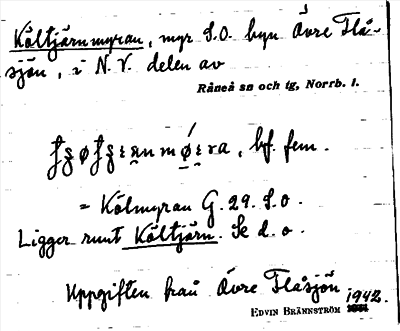 Költjärnmyran, myr S.O. byn Övre Flå-
sjön, i N.V. delen av
Råneå sn och tg, Norrb. l.
bf. fem.
= Kölmyran G. 29. S.o.
Ligger runt Költjärn. Se d.o.
Uppgiften från Övre Flåsjön 1942.
EDVIN BRÄNNSTRÖM